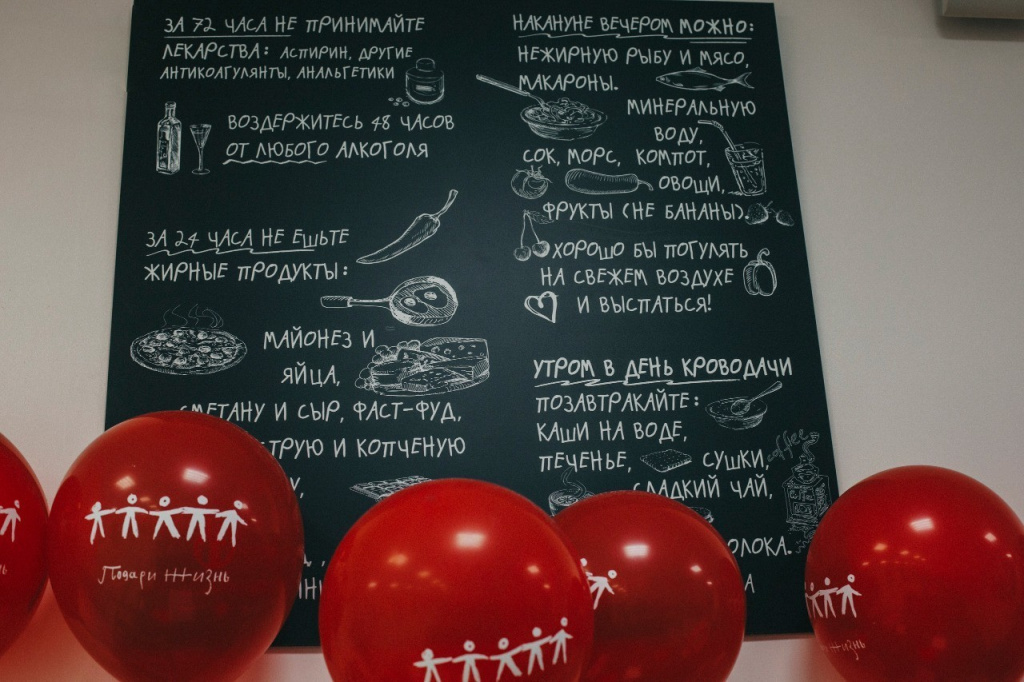 ЗА 72 ЧАСА НЕ ПРИНИМАЙТЕ
ЛЕКАРСТВА: АСПИРИН, ДРУГИЕ
АНТИКОАГУЛЯНТЫ, АНАЛЬГЕТИКИ
ВОЗДЕРЖИТЕСЬ 48 ЧАСОВ
ОТ ЛЮБОГО АЛКОГОЛЯ
ЗА 24 ЧАСА НЕ ЕШЬТЕ
ЖИРНЫЕ ПРОДУКТЫ:
МАЙОНЕЗ И
ЯЙЦА,
СМЕТАНУ И СЫР, ФАСТ-ФУД,
ТРУЮ И КОПЧЕНУЮ
НАКАНУНЕ ВЕЧЕРОМ МОЖНО:
НЕЖИРНУЮ РЫБУ И МЯСО,
МАКАРОНЫ.
МИНЕРАЛЬНУЮ
ВОДУ,
СОК, МОРС, КОМПОТ,
ОВОЩИ,
ФРУКТЫ (НЕ БАНАНЫ).
ХОРОШО БЫ ПОГУЛЯТЬ
НА СВЕЖЕМ ВОЗДУХЕ
И ВЫСПАТЬСЯ!
УТРОМ В ДЕНЬ КРОВОДАЧИ
ПОЗАВТРАКАЙТЕ:
КАШИ НА ВОДЕ,
ПЕЧЕНЬЕ, СУШКИ,
СЛАДКИЙ ЧАЙ,
ОЛОКА.
coffee
Подари Жизнь
Жизнь